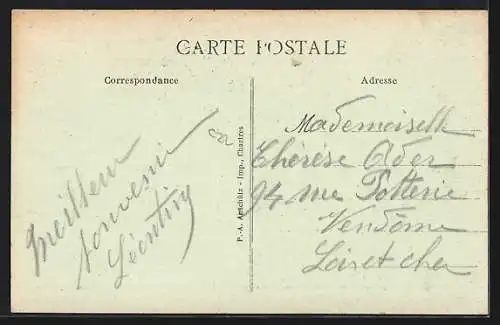 CARTE POSTALE
Correspondance
Adresse
Meilleur
souvenir
Léontine
P.-A. Artchitz - Imp., Chartres
Mademoiselle
Thérèse Ader
94 rue Potterie
Vendôme
Loir et cher